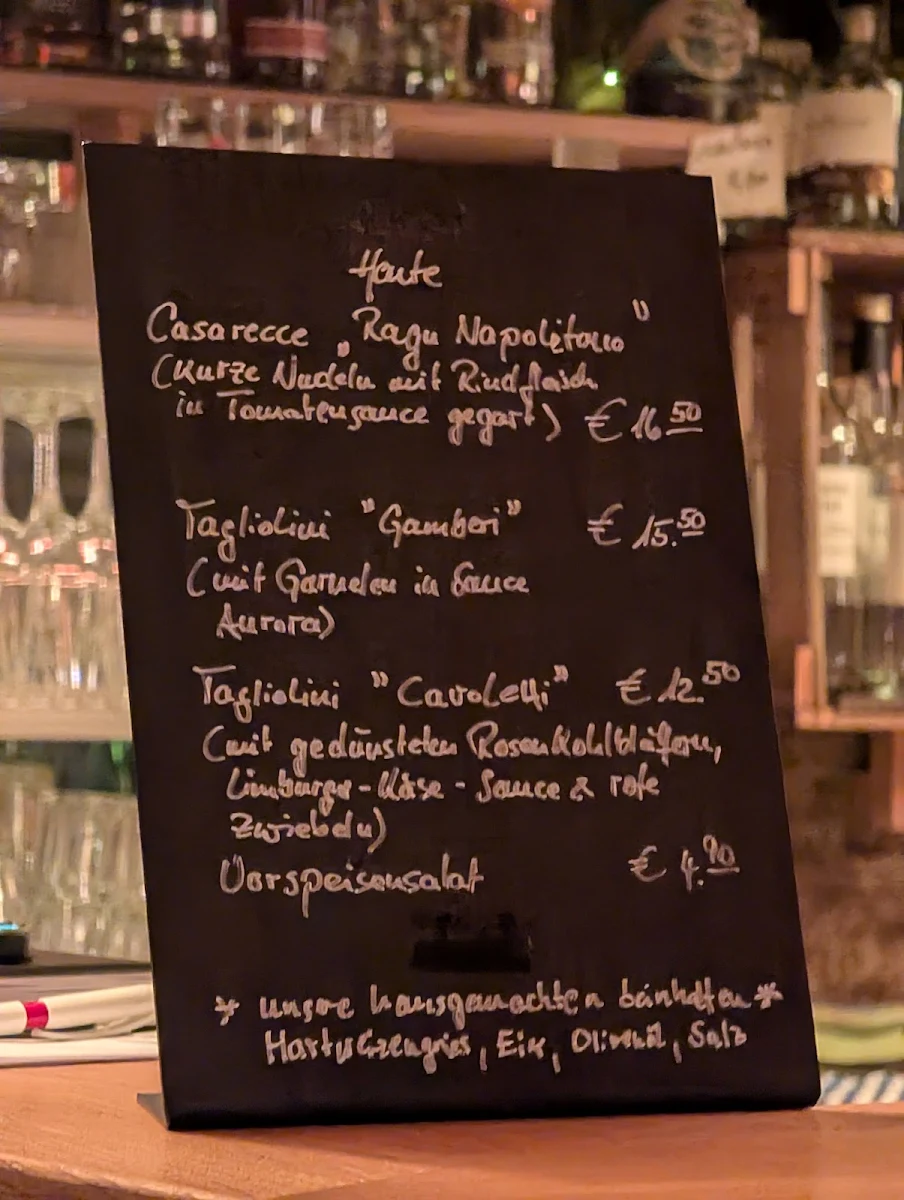 Heute
Casarecce „Ragu Napolitano"
(Kurze Nudeln mit Rindfleisch
in Tomatensauce gegart) € 16 50
Tagliolini "Gamberi" € 15.50
(mit Garnelen in Sauce
Aurora)
Tagliolini "Cavoletti" € 12.50
(mit gedünsteten Rosenkohlblättern,
Limburger-Käse-Sauce & rote
Zwiebeln)
Vorspeisensalat € 4.90
* unsere hausgemachten beinhalten *
Hartweizengries, Eier, Olivenöl, Salz